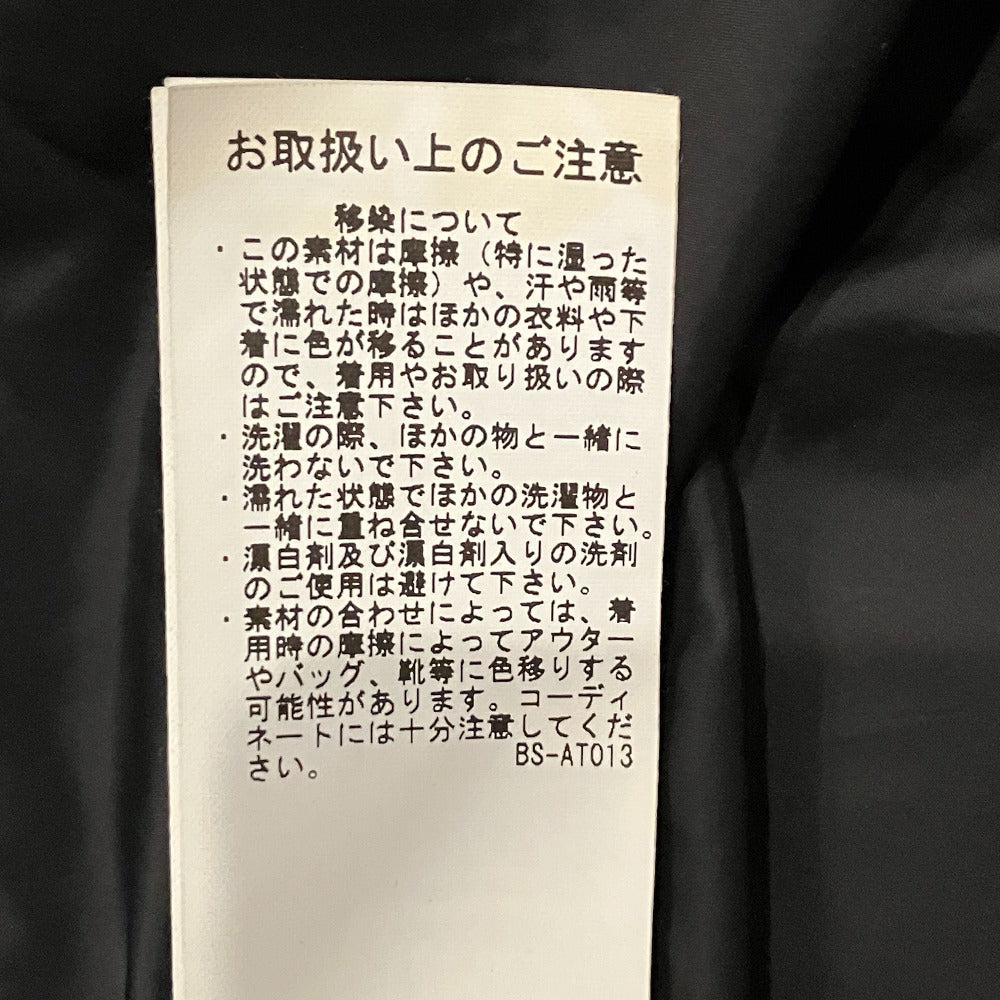 お取扱い上のご注意
移染について
・この素材は摩擦（特に湿った
状態での摩擦）や、汗や雨等
で濡れた時はほかの衣料や下
着に色が移ることがあります
ので、着用やお取り扱いの際
はご注意下さい。
・洗濯の際、ほかの物と一緒に
洗わないで下さい。
・濡れた状態でほかの洗濯物と
一緒に重ね合せないで下さい。
・漂白剤及び漂白剤入りの洗剤
のご使用は避けて下さい。
・素材の合わせによっては、着
用時の摩擦によってアウター
やバッグ、靴等に色移りする
可能性があります。コーディ
ネートには十分注意してくだ
さい。
BS-AT013